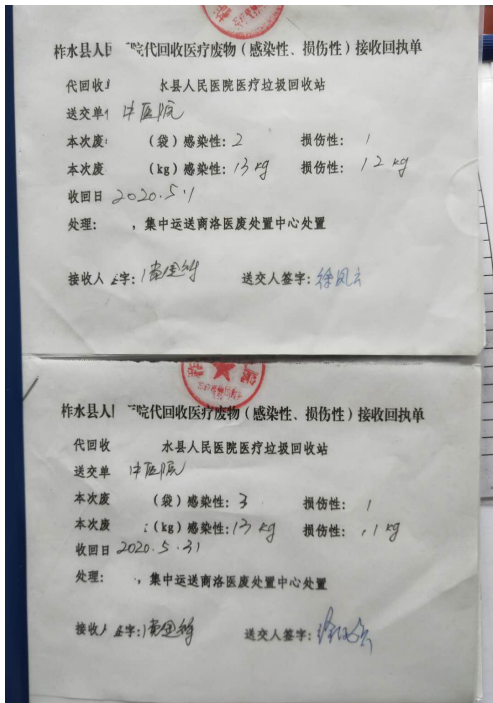 柞水县人民医院代回收医疗废物(感染性、损伤性)接收回执单
代回收 水县人民医院医疗垃圾回收站
送交单 中医院
本次废 (袋)感染性: 2 损伤性: 1
本次废 (kg)感染性: 13kg 损伤性: 12kg
收回日 2020.5.1
处理: ,集中运送商洛医废处置中心处置
接收人 签字: 送交人签字: 徐凤云
柞水县人 医院代回收医疗废物(感染性、损伤性)接收回执单
代回收 水县人民医院医疗垃圾回收站
送交单 中医院
本次废 (袋)感染性: 3 损伤性: 1
本次废 (kg)感染性: 13kg 损伤性: .1kg
收回日 2020.5.31
处理: ,集中运送商洛医废处置中心处置
接收人 签字: 送交人签字: